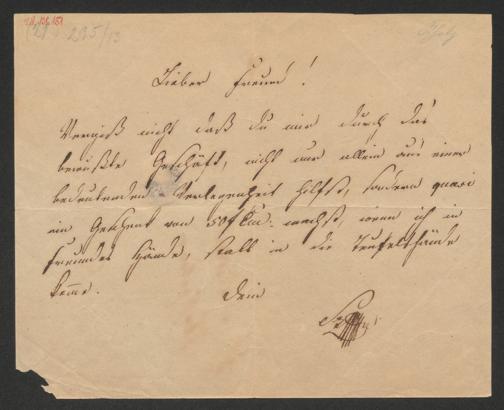 235/13
Lieber Freund!
Vergiß nicht daß du mir durch das
bewußte Geschäft, nicht nur allein aus einer
bedeutenden Verlegenheit hilfst, sondern quasi
ein Geschenk von 50 f machst, wenn ich in
Freundes Hände, statt in die Teufelshände
komme.
Dein